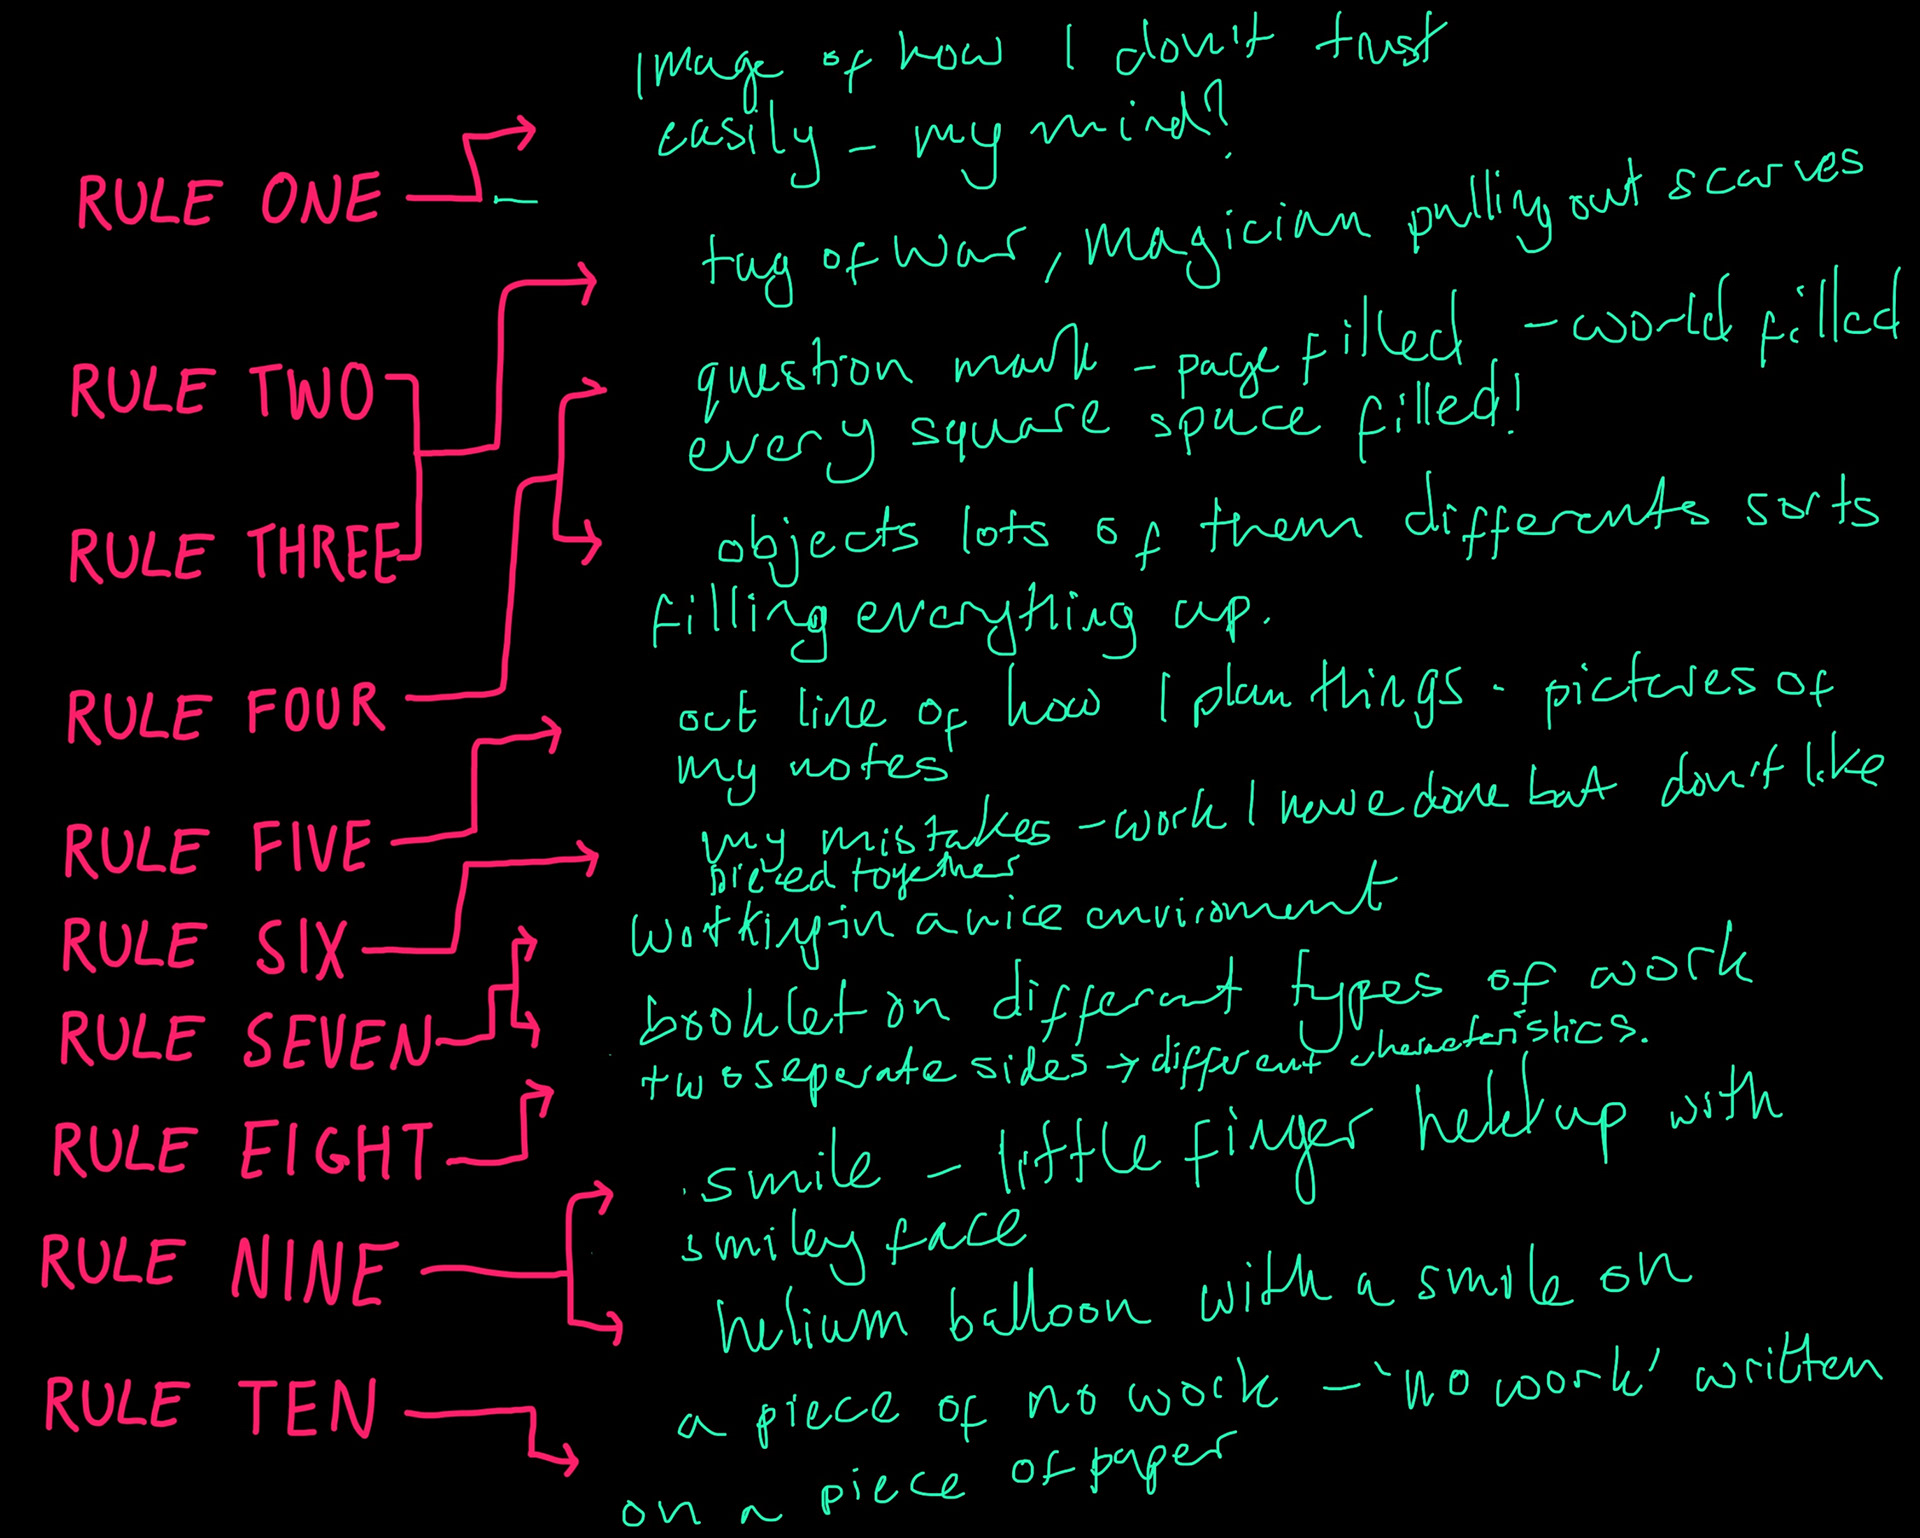 RULE ONE
RULE TWO
RULE THREE
RULE FOUR
RULE FIVE
RULE SIX
RULE SEVEN
RULE EIGHT
RULE NINE
RULE TEN
Image of how I don't trust
easily - my mind?
tug of war, magician pulling out scarves
question mark - page filled - world filled
every square space filled!
objects lots of them differents sorts
filling everything up.
out line of how I plan things - pictures of
my notes
my mistakes - work I have done but don't like
pieced together
Working in a nice enviroment
booklet on different types of work
two seperate sides → different characteristics.
smile - little finger held up with
smiley face
helium balloon with a smile on
a piece of no work - 'no work' written
on a piece of paper